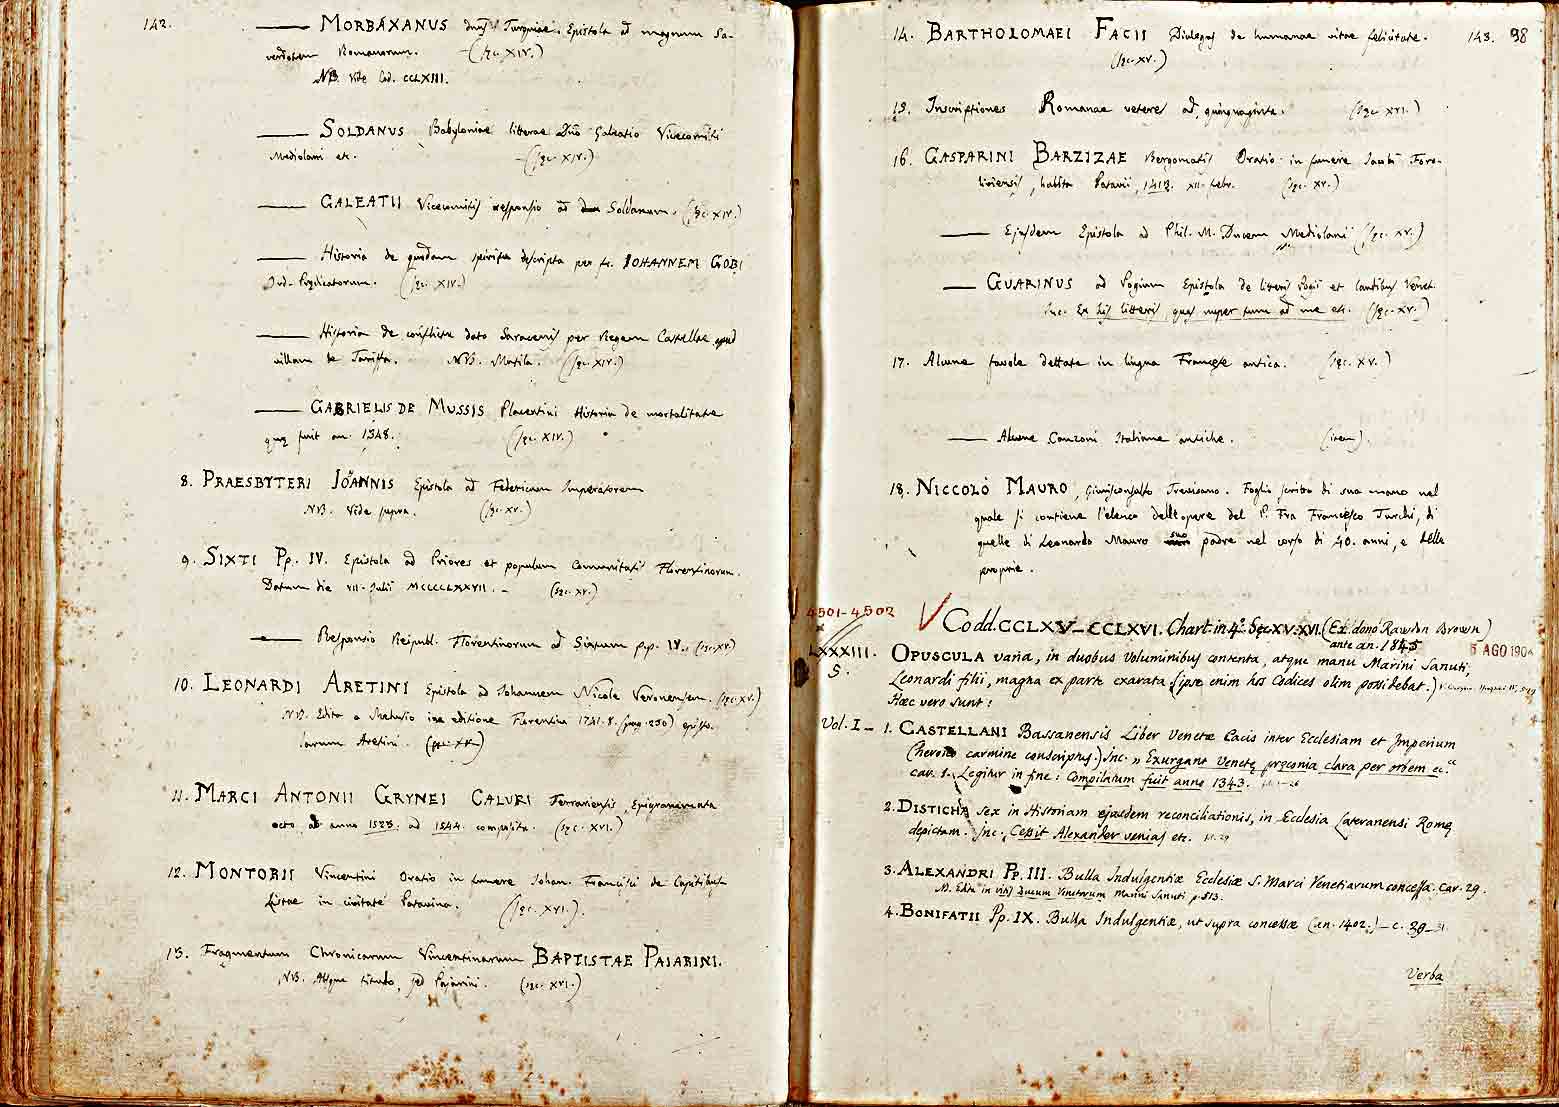 142.
— MORBAXANUS dnus Turquiae. Epistola ad magnum Sa-
cerdotem Romanorum. — (sęc. XIV.)
NB. Vide Cod. CCLXIII.
— SOLDANUS Babyloniae litterae Dnō Galeatio Vicecomiti
Mediolani etc. — (sęc. XIV.)
— GALEATII Vicecomitis responsio ad Soldanum. (sęc. XIV.)
— Historia de quodam spiritu descripta per fr. IOHANNEM GOBI
Ord. Prędicatorum. (sęc. XIV.)
— Historia de conflictu dato Saracenis per Regem Castellae apud
villam de Tariffa. NB. Mutila. (sęc. XIV.)
— GABRIELIS DE MUSSIS Placentini Historia de mortalitate
quę fuit an. 1348. (sęc. XIV.)
8. PRAESBYTERI JOANNIS Epistola ad Federicum Imperatorem
NB. Vide supra. (sęc. XV.)
9. SIXTI Pp. IV. Epistola ad Priores et populum Comunitatis Florentinorum.
Datum die VII. Julii MCCCCLXXVII. — (sęc. XV.)
— Responsio Reipubl. Florentinorum ad Sixtum pp. IV. (sęc. XV)
10. LEONARDI ARETINI Epistola ad Iohannem Nicole Veronensem. (sęc. XV.)
NB. Edita a in editione Florentina 1741. 8. (pag. 230) episto-
larum Aretini. (sęc. XV.)
11. MARCI ANTONII GRYNEI CALURI Ferrariensis Epigrammata
octo ab anno 1523. ad 1544. composita. (sęc. XVI.)
12. MONTORII Vincentini Oratio in funere Johan. Francisci de Capitibus
Listae in civitate Patavina. (sęc. XVI.)
13. Fragmentum Chronicarum Vincentinarum BAPTISTAE PAIARINI.
NB. Absque titulo, sed Pajarini. (sęc. XVI.)
143. 98
14. BARTHOLOMAEI FACII Dialogus de humanae vitae felicitate.
(sęc. XV.)
15. Inscriptiones Romanae veteres ad quinquaginta. (sęc. XVI.)
16. GASPARINI BARZIZAE Bergomatis Oratio in funere Jacobi Foro-
liviensis, habita Patavii, 1413. XII. febr. (sęc. XV.)
— Ejusdem Epistola ad Phil. M. Ducem Mediolani (sęc. XV.)
— GUARINUS ad Pogium Epistola de litteris Pogii et laudibus Venet.
Inc. Ex his litteris, quas nuper tum ad me etc. (sęc. XV.)
17. Alcune favole dettate in lingua Francese antica. (sęc. XV.)
— Alcune Canzoni Italiane antiche. (item).
18. NICCOLÒ MAURO, Giurisconsulto Trevisano. Foglio scritto di sua mano nel
quale si contiene l'elenco dell'opere del P. Fra Francesco Turchi, di
quelle di Leonardo Mauro suo padre nel corso di 40. anni, e delle
proprie.
4501-4502
Codd. CCLXV–CCLXVI. Chart. in 4.º Sęc. XV. XVI. (Ex dono Rawdon Brown)
ante an. 1845
5 AGO 190
LXXXIII.
5.
OPUSCULA varia, in duobus Voluminibus contenta, atque manu Marini Sanuti,
Leonardi filii, magna ex parte exarata (ipse enim hos Codices olim possidebat.)
Hæc vero sunt:
Vol. I — 1. CASTELLANI Bassanensis Liber Venetæ Pacis inter Ecclesiam et Imperium
(heroico carmine conscriptus.) Inc. „ Exurgant Venetę pręconia clara per orbem ec."
car. 1. Legitur in fine: Compilatum fuit anno 1343.
2. DISTICHA sex in Historiam ejusdem reconciliationis, in Ecclesia Lateranensi Romę
depictam. Inc. Cessit Alexander venias etc. 29
3. ALEXANDRI Pp. III. Bulla Indulgentiæ Ecclesiæ S. Marci Venetiarum concessa. Car. 29.
NB. Edita in vitis Ducum Venetorum Marini Sanuti p. 513.
4. BONIFATII Pp. IX. Bulla Indulgentiæ, ut supra concessæ (an. 1402.) — c. 29–31.
Verba